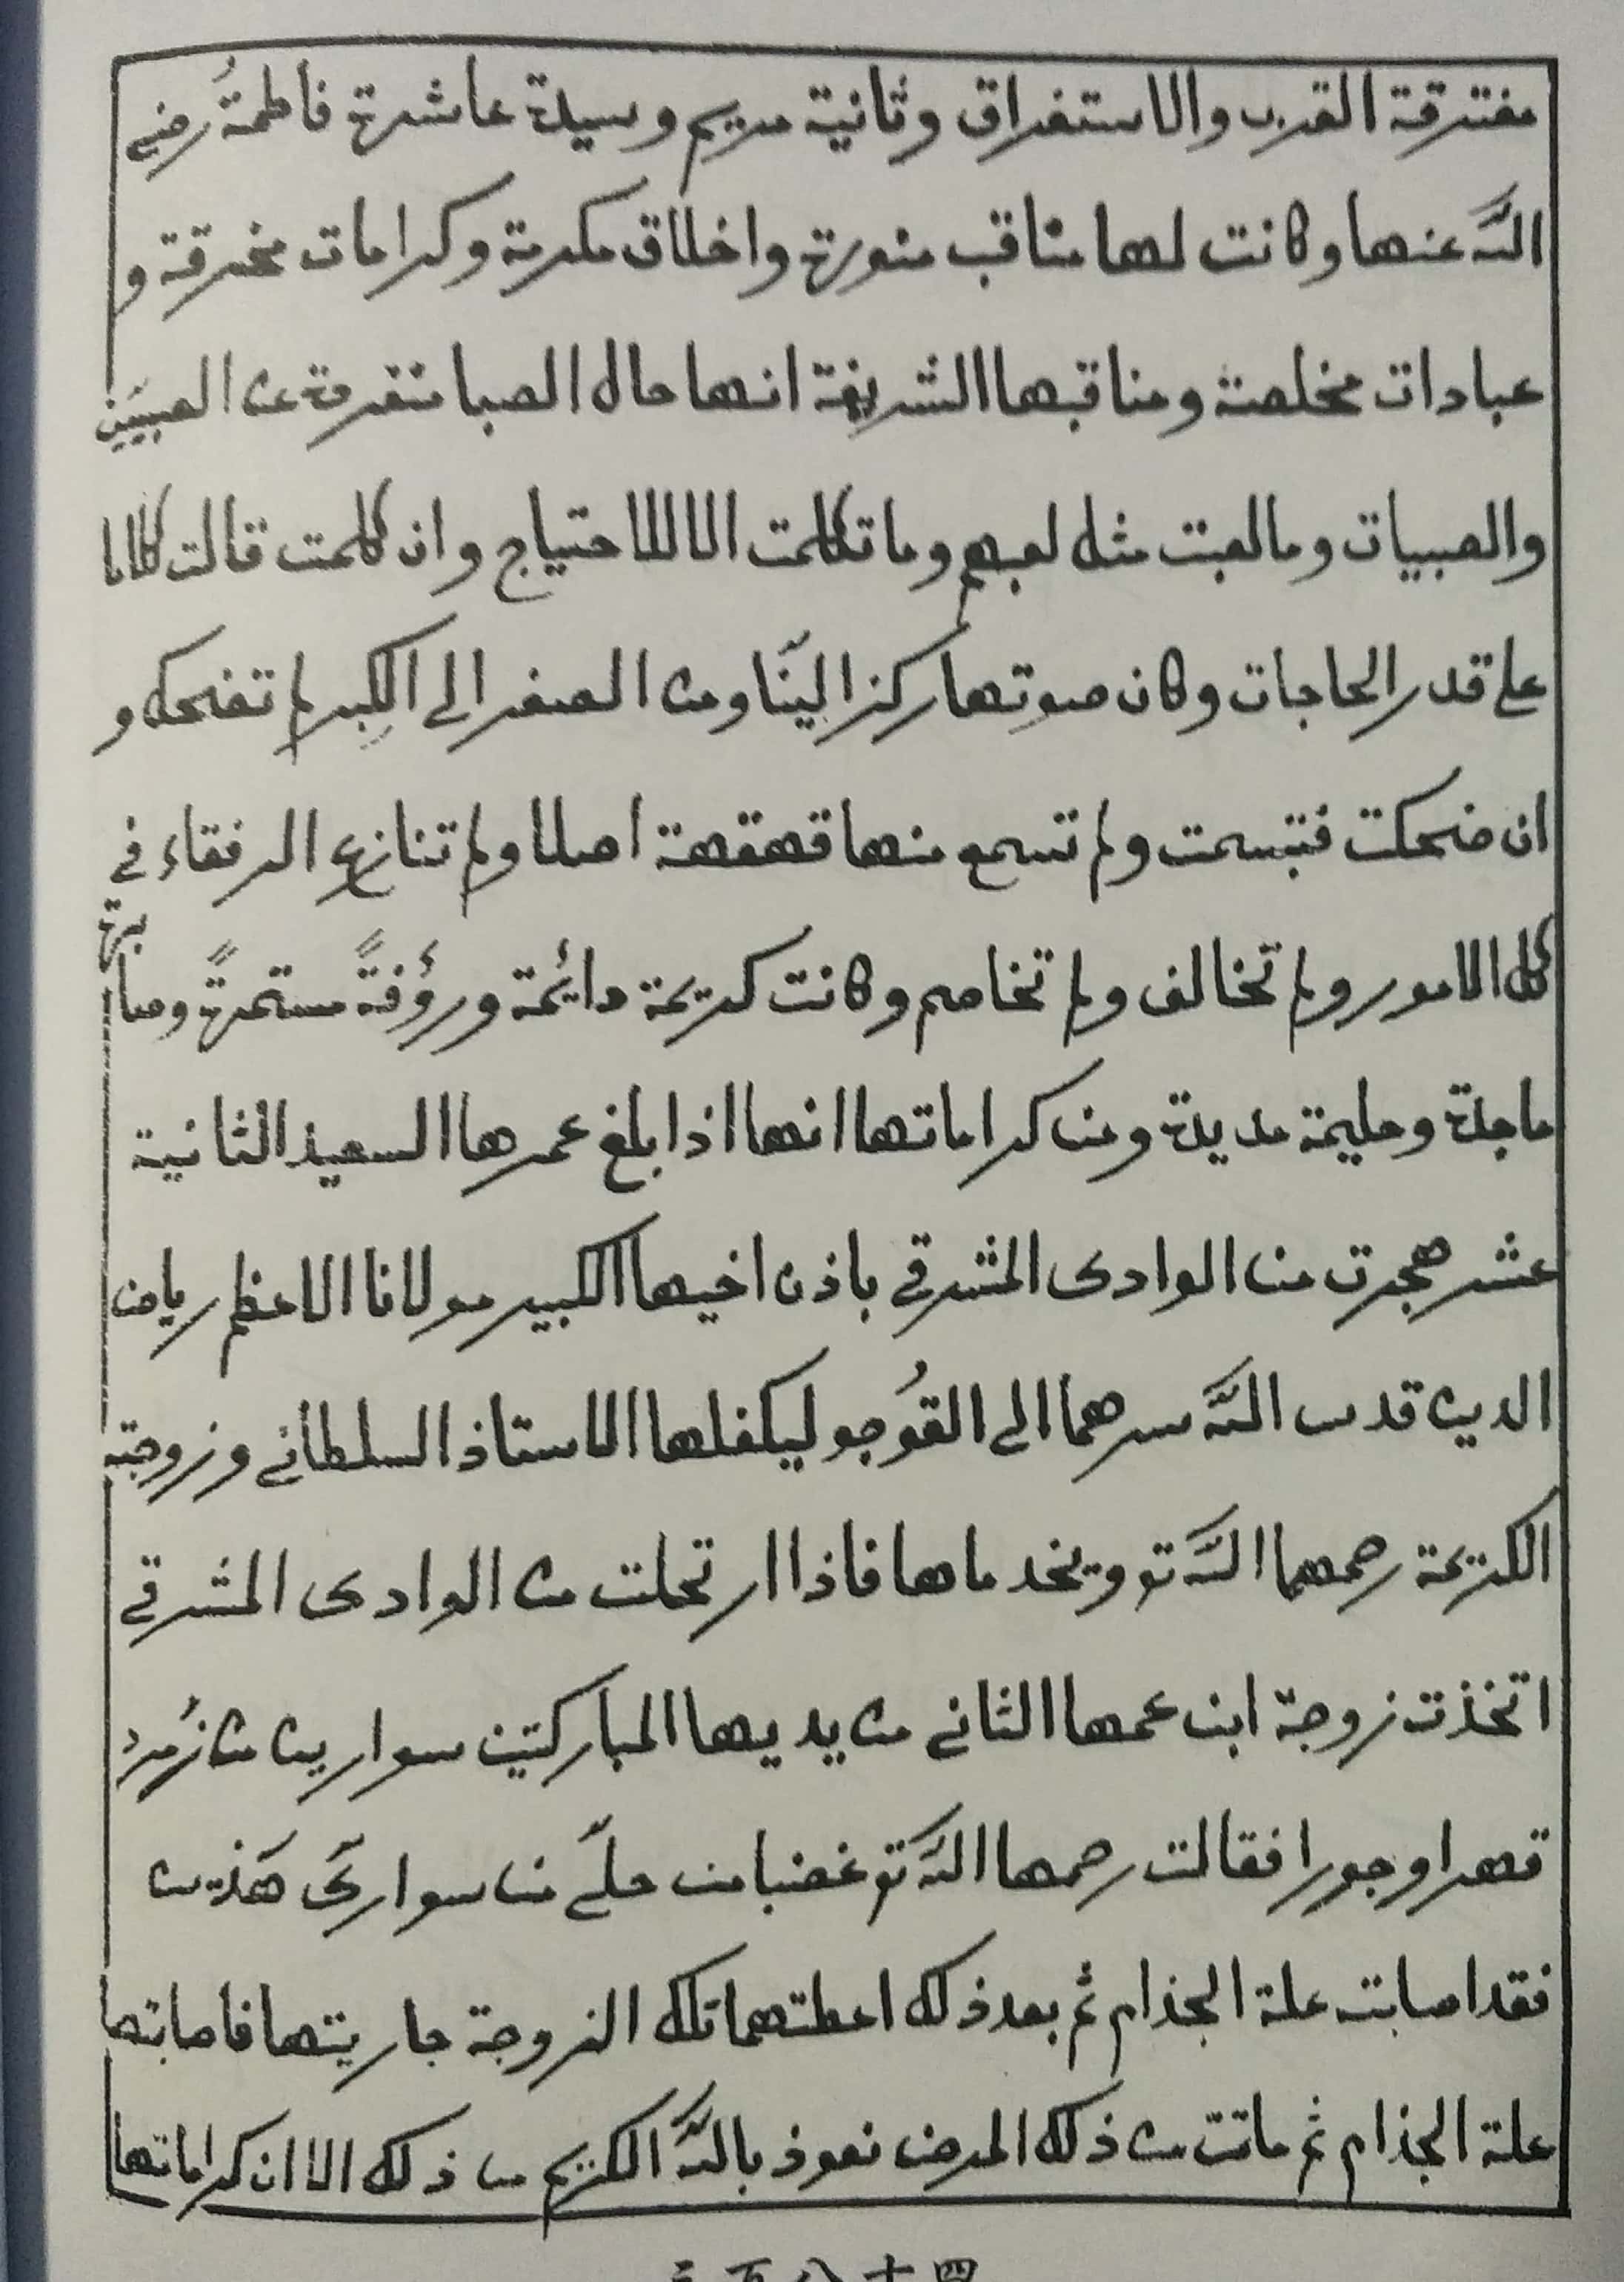 مفترقة القرب والاستغراق وثانية مريم وسيدة عاشرة فاطمةُ رضي
اللّه عنها وكانت لها مناقب منورة واخلاق مكرمة وكرامات مخرقة و
عبادات مخلصة ومناقبها الشريفة انها حال الصبا متفرقة عن الصبيَين
والصبيات وما لعبت مثل لعبهم وما تكلمت الا للاحتياج وان كلمت قالت كلاما
على قدر الحاجات وكان صوتها ركزا لينًا ومن الصغر الى الكِبر لم تضحك و
ان ضحكت فتبسمت ولم تسمع منها قهقهة اصلا ولم تنازع الرفقاء في
كل الامور ولم تخالف ولم تخاصم وكانت كريمة دائمة ورؤفةً مستمرةً وصابرة
ماجدة وحليمة مديدة ومن كراماتها انها اذا بلغ عمرها السعيد الثانية
عشر هجرت من الوادى المشرقي باذن اخيها الكبير مولانا الاعظم رياض
الدين قدس اللّه سرهما الى القوُجو ليكفلها الاستاذ السلطاني وزوجته
الكريمة رحمهما اللّه تع ويخدماها فاذا ارتحلت من الوادى المشرقي
اتخذت زوجة ابن عمها الثاني من يديها المباركتين سوارين من زُمرد
قهرا وجورا فقالت رحمها اللّه تع غضبا من حلّي من سوارَىَّ هَذين
فقد اصابت علة الجذام ثم بعد ذلك اعطتهما تلك الزوجة جاريتها فاصابتها
علة الجذام ثم ماتت من ذلك المرض نعوذ باللّه الكريم من ذلك الا ان كراماتها
三百八十四